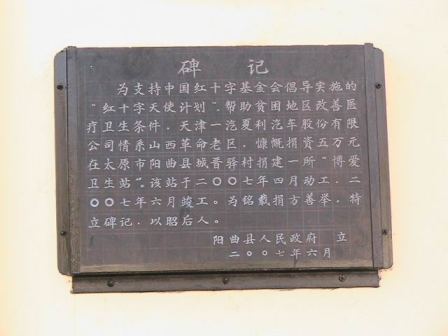 碑记
为支持中国红十字基金会倡导实施的
“红十字天使计划”，帮助贫困地区改善医
疗卫生条件，天津一汽夏利汽车股份有限
公司情系山西革命老区，慷慨捐资五万元
在太原市阳曲县城晋驿村捐建一所“博爱
卫生站”。该站于二〇〇七年四月动工，二
〇〇七年六月竣工。为铭载捐方善举，特
立碑记，以昭后人。
阳曲县人民政府 立
二〇〇七年六月